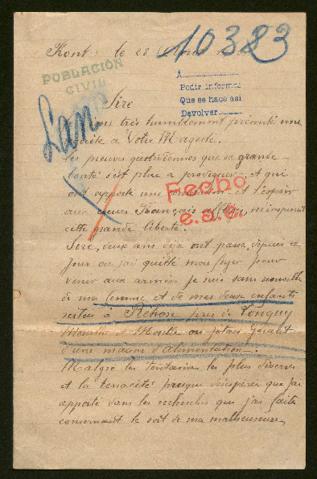 le 28
10383
POBLACIÓN
CIVIL
A
Pedir informes
Que se hace así
Devolver
Sire
très humblement présenté une
à Votre Majesté.
Les preuves quotidiennes que sa grande
bonté s'est plue à prodiguer et qui
ont apporté une et l'espoir
aux Français m'inspirent
cette grande liberté.
Fecho
Sire, deux ans déjà ont passé, depuis le
jour où j'ai quitté mon foyer pour
venir aux armées je suis sans nouvelle
de ma femme et de mes deux enfants
restés à Réhon près de Longwy
Meurthe et Moselle où j'étais gérant
d'une maison d'alimentation.
Malgré les tentatives les plus diverses
et la ténacité presque désespérée que j'ai
apporté dans les recherches que j'ai faites
concernant le sort de ma malheureuse